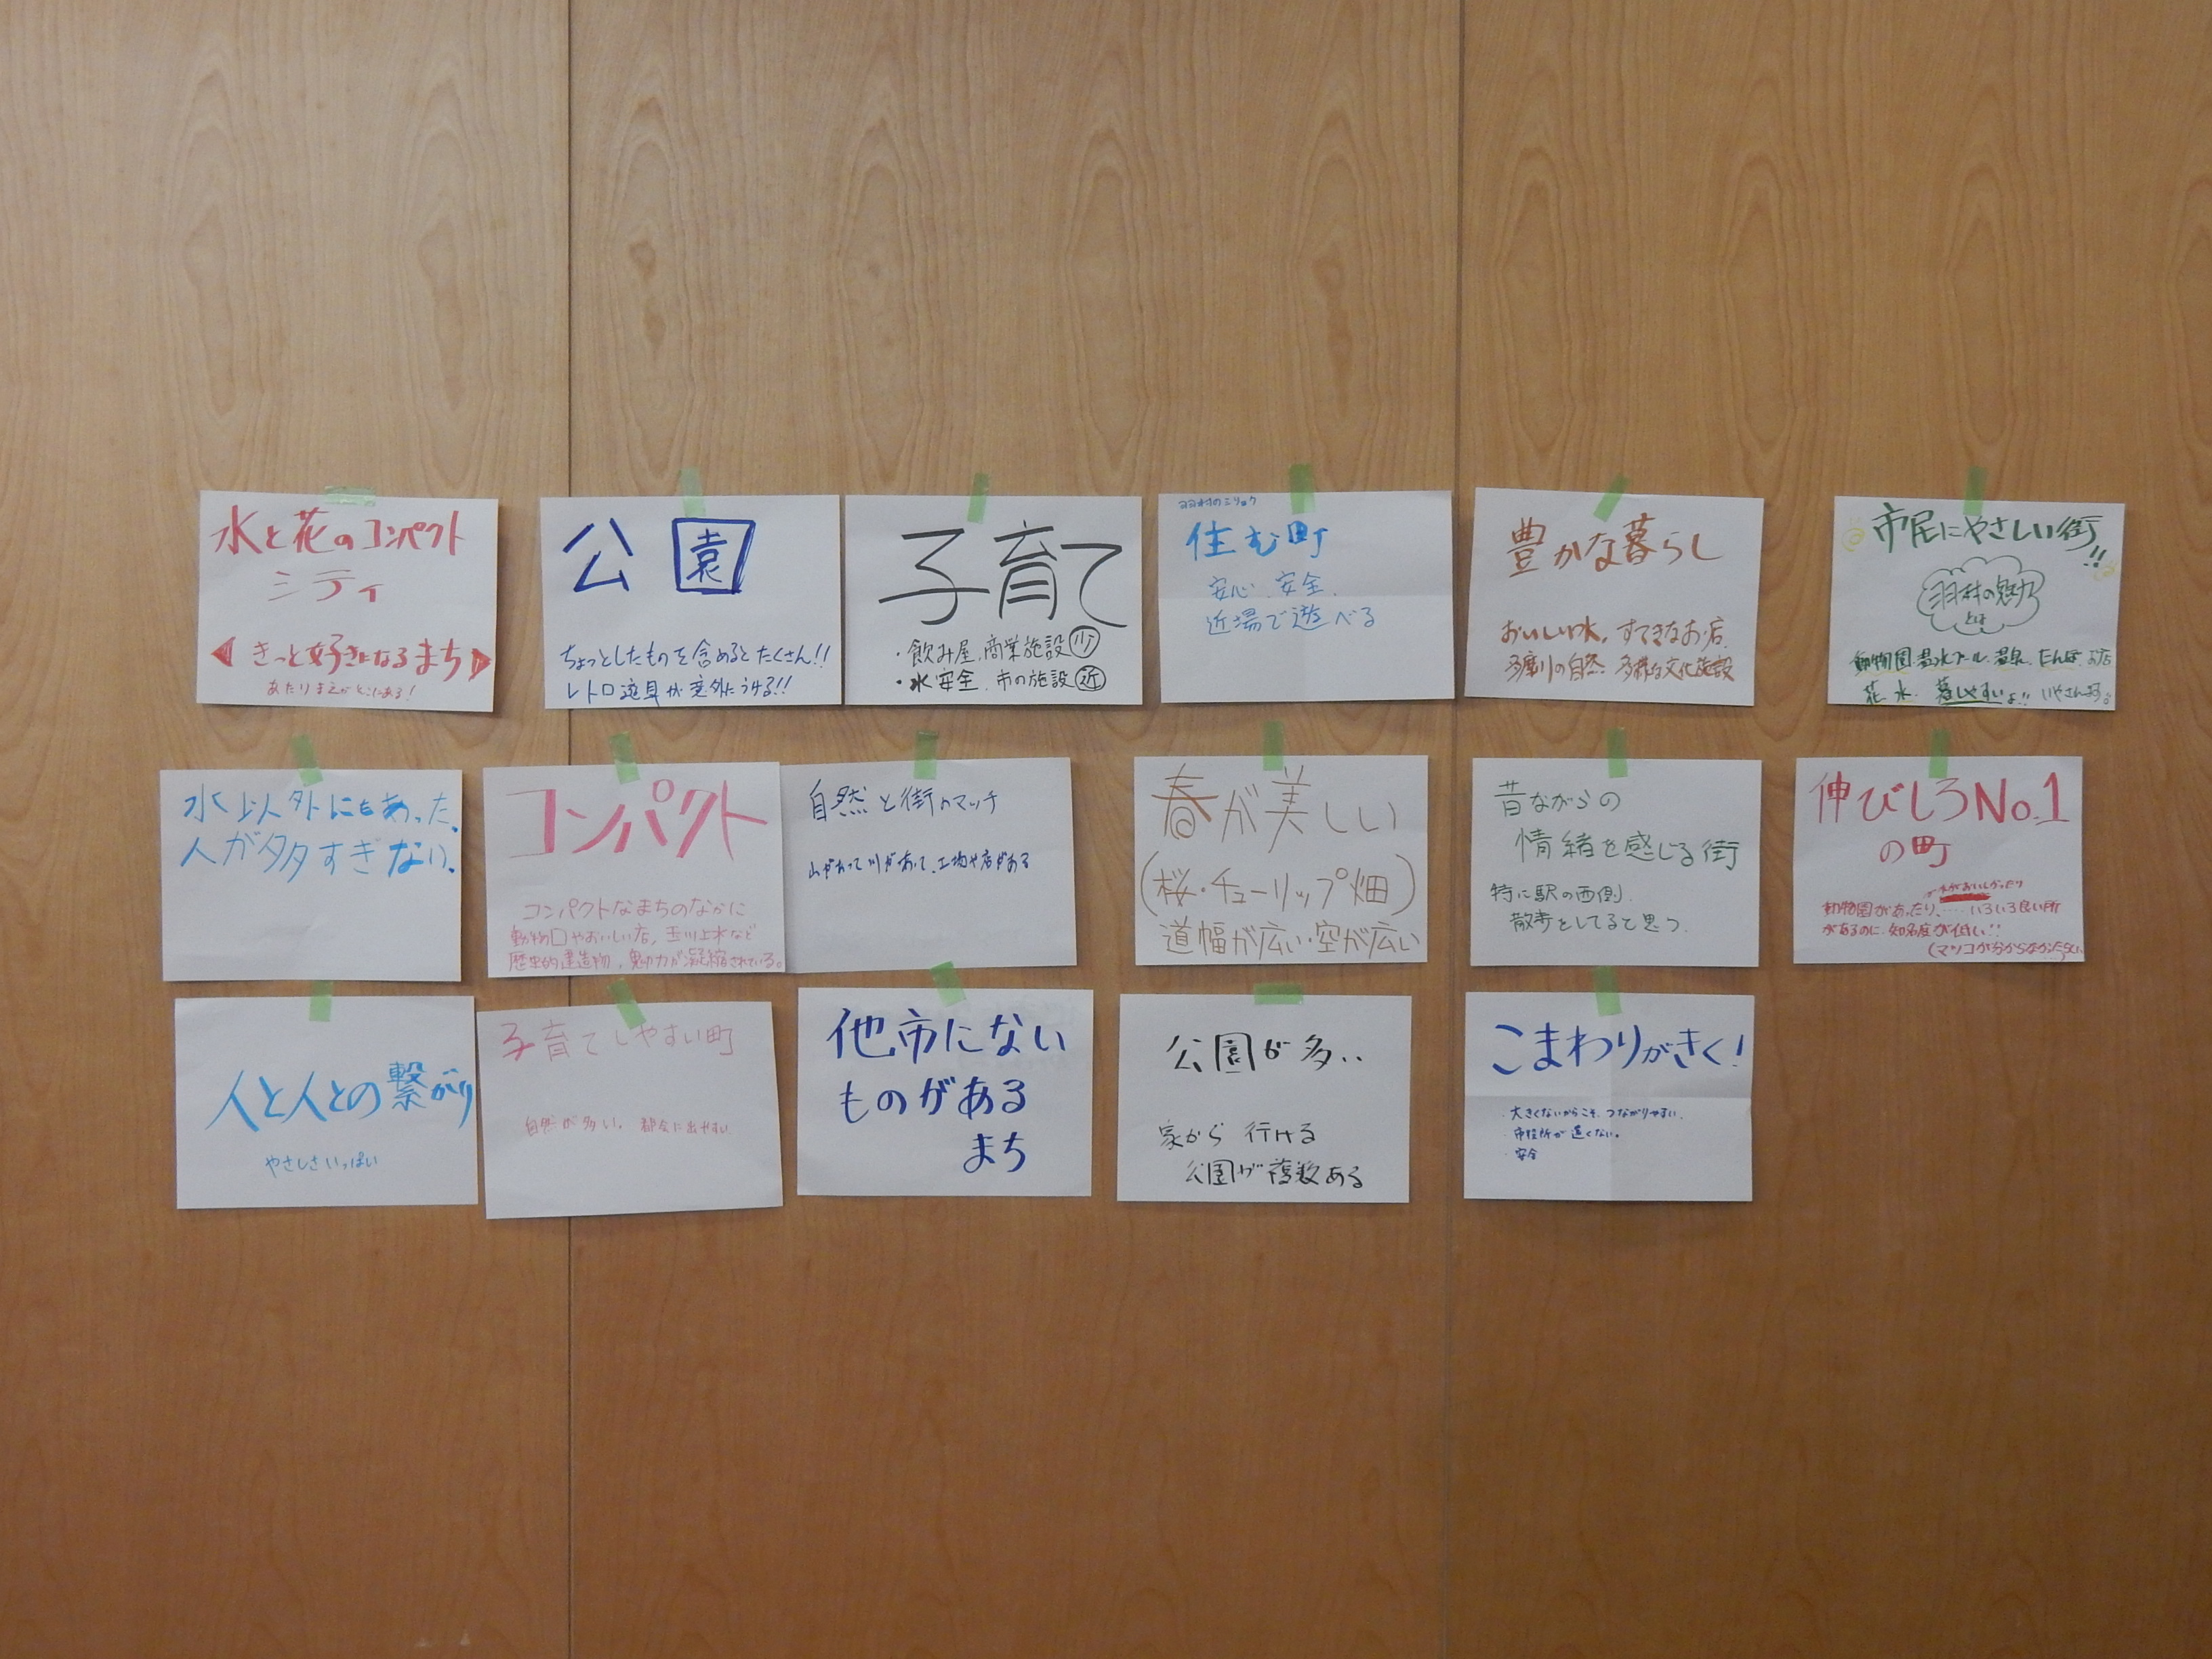 水と花のコンパクト
シティ
きっと好きになるまち
あたりまえがここにある!
公園
ちょっとしたものを含めるとたくさん!!
レトロ遊具が意外にうける!!
子育て
・飲み屋、商業施設少
・水安全、市の施設近
羽村のミリョク
住む町
安心、安全、
近場で遊べる
豊かな暮らし
おいしい水、すてきなお店、
多摩川の自然、多様な文化施設
市民にやさしい街!!
羽村の魅力
とは
動物園、温水プール、温泉、たんぼ、お店
花、水、暮しやすいよ!!
水以外にもあった。
人が多すぎない。
コンパクト
コンパクトなまちのなかに
動物園やおいしい店、玉川上水など
歴史的建造物、魅力が凝縮されている。
自然と街のマッチ
山があって川があって、工場や店がある
春が美しい
(桜・チューリップ畑)
道幅が広い・空が広い
昔ながらの
情緒を感じる街
特に駅の西側、
散歩としてると思う。
伸びしろNo.1
の町
水がおいしかったり
動物園があったり、……いろいろ良い所
があるのに、知名度が低い!!
(マツコが分からなかったらしい
人と人との繋がり
やさしさいっぱい
子育てしやすい町
自然が多い、都会に出やすい
他市にない
ものがある
まち
公園が多い
家から行ける
公園が複数ある
こまわりがきく!
・大きくないからこそ、つながりやすい。
・市役所が遠くない。
・安全